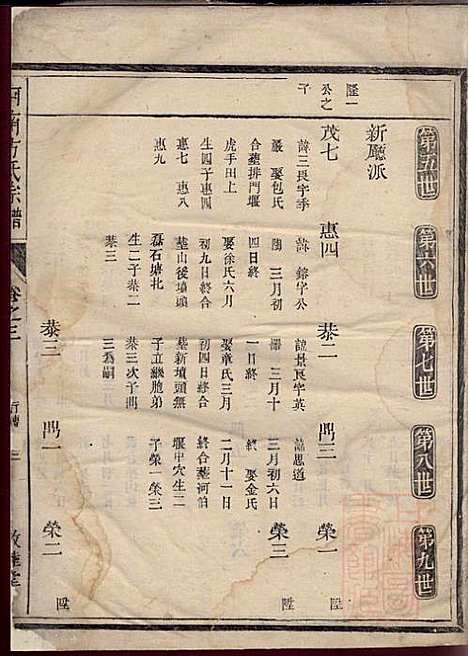 第五世
第六世
第七世
第八世
第九世
新廳派
隆一
公之
子
茂七
諱三長字季
叢 娶包氏
合塟排門堰
虎手田上
生四子惠四
惠七 惠八
惠九
惠四
諱 鎔字公
陶 三月初
四日終
娶徐氏六月
初九日終合
塟山後墳頭
磊石塘北
生二子恭二
恭三
恭二
諱景良字英
三月十
一日終
娶章氏三月
初四日終合
塟新墳頭無
子立繼胞弟
恭三次子閂
三為嗣
三
諱思道
三月初六日
終 娶金氏
二月十一日
終合塟河伯
堰中穴生二
子榮一榮三
榮一
陞
榮三
陞
恭三
一
榮二
陞
河南方氏宗譜
卷之三
行傳
三
敦睦堂